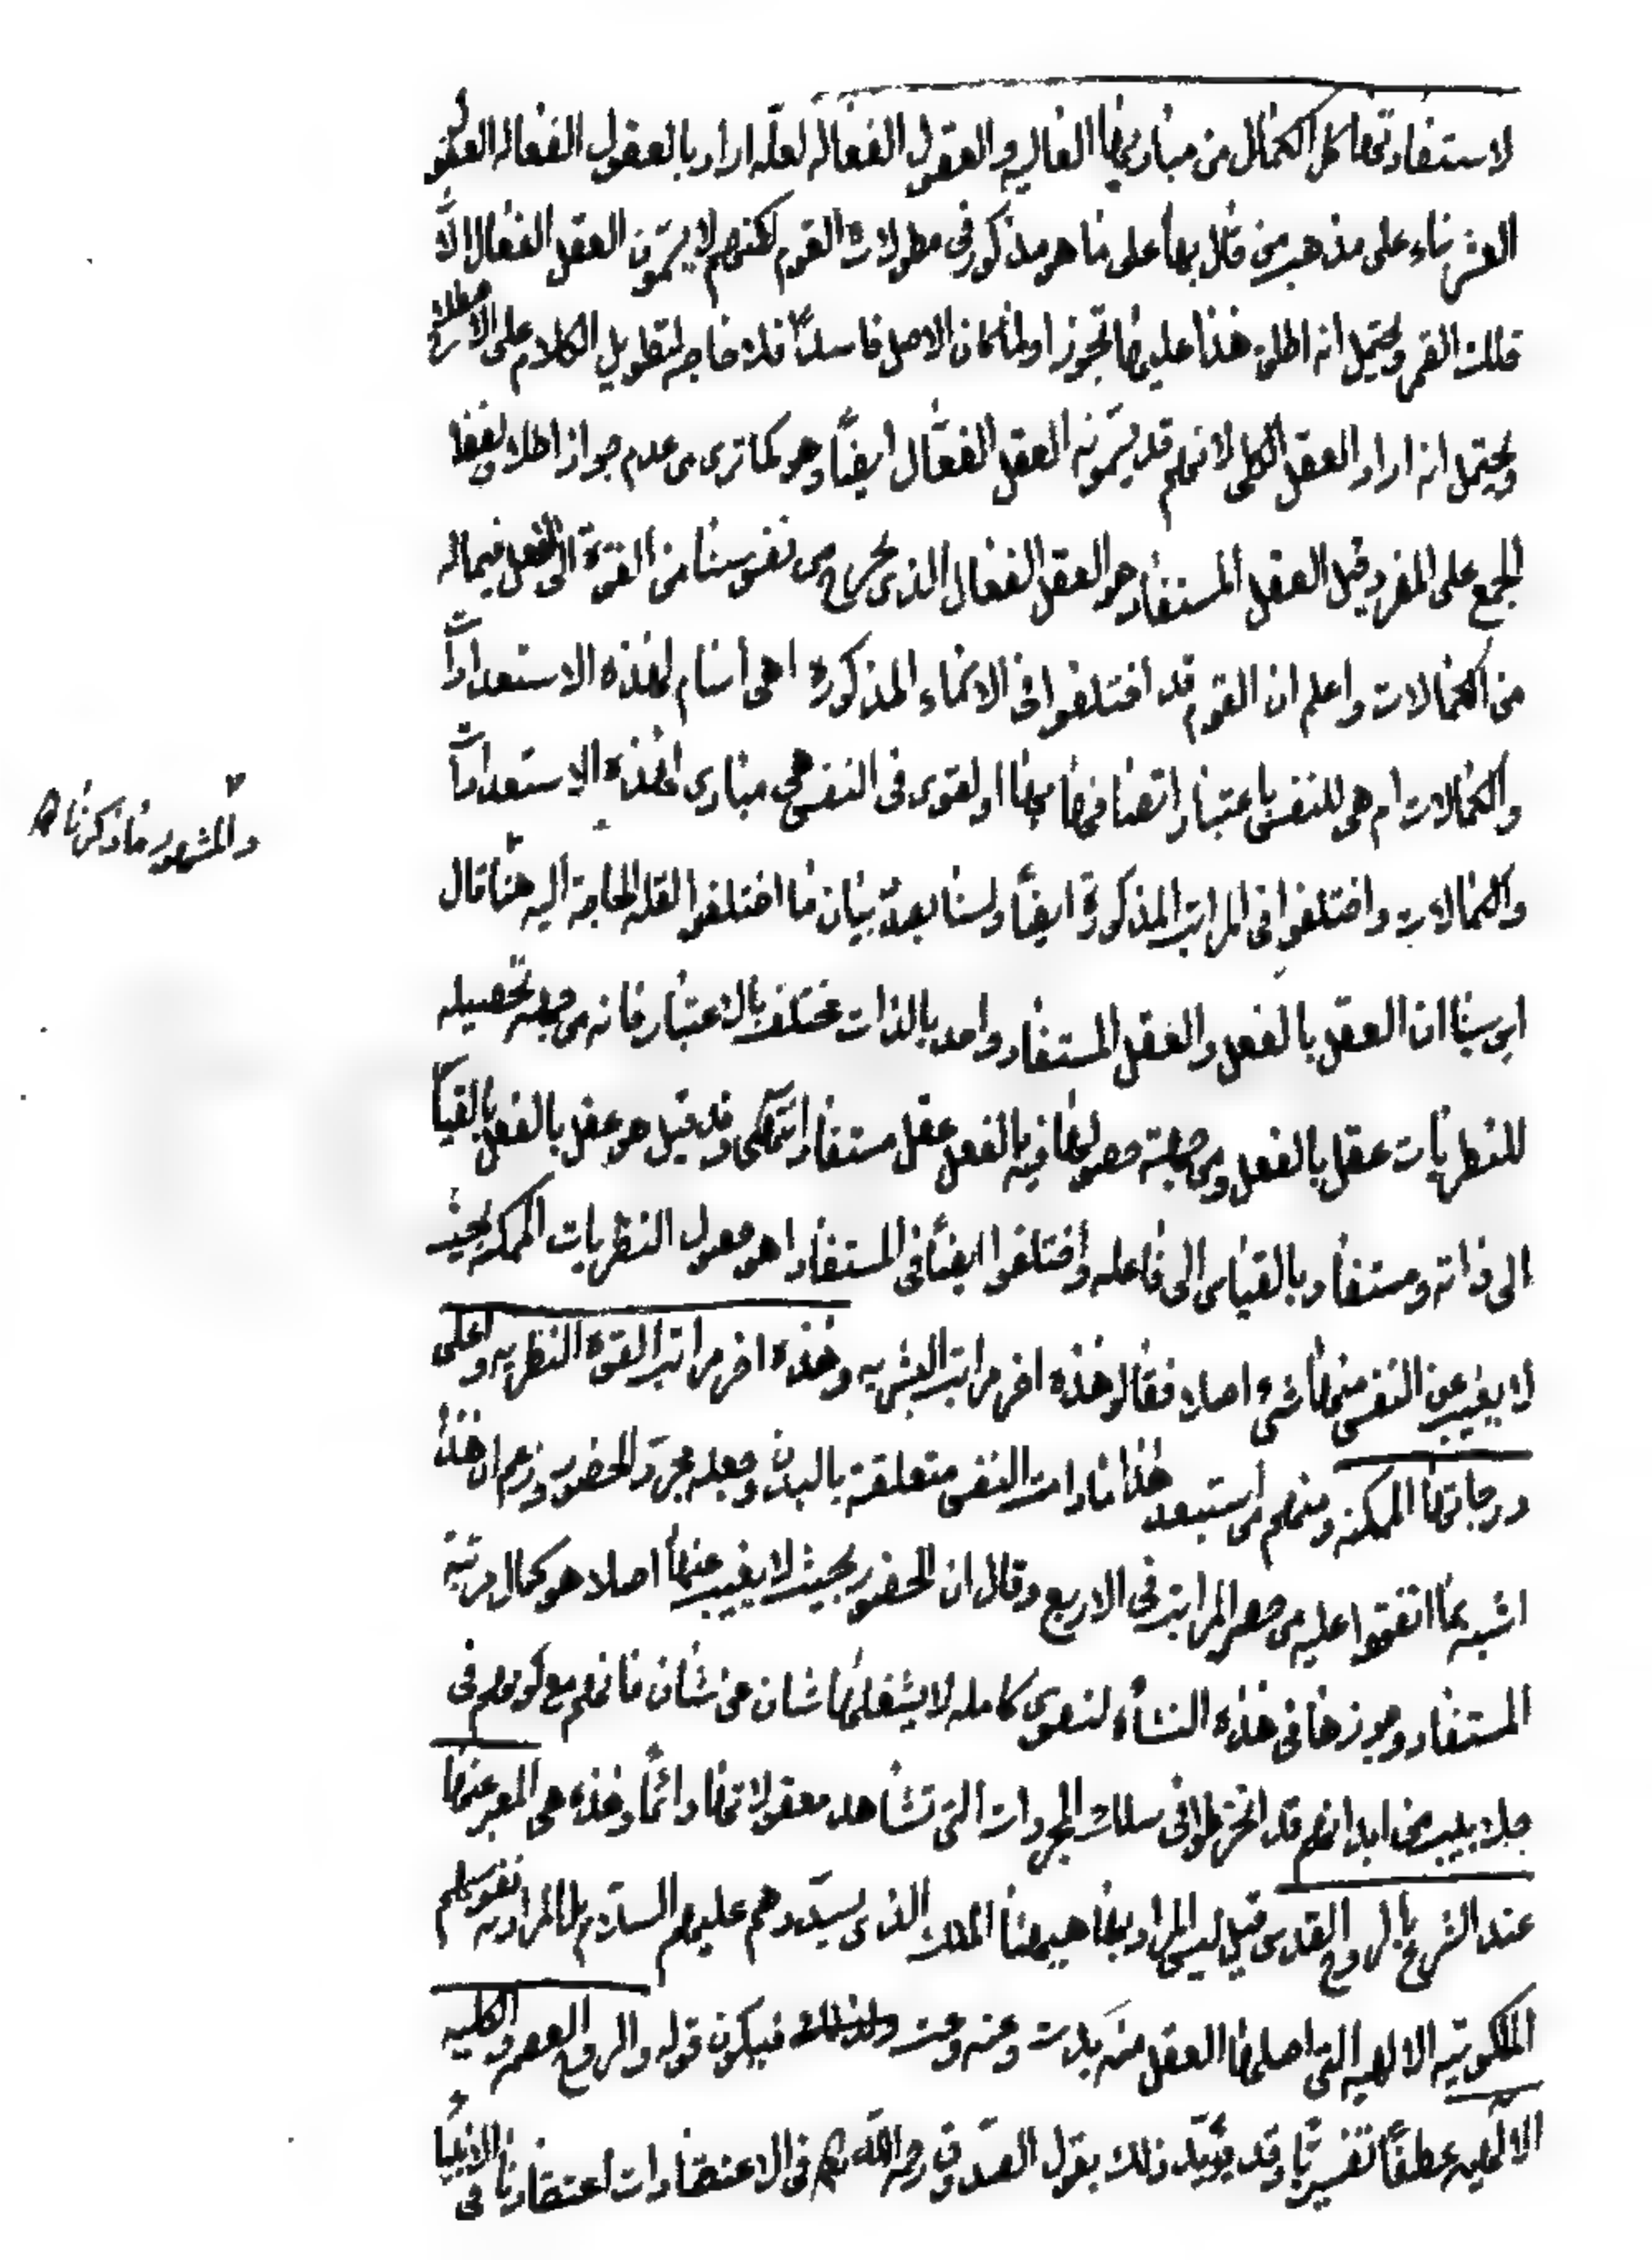 لاستفادتها كل الكمال من مباديها العاليه والعقول الفعاله لعله اراد بالعقول الفعاله العقول
العشر بناء على مذهب من قال بها على ما هو مذكور في مطولات القوم لكنهم لا يسمون العقل الفعال الا
فلك القمر ويحتمل انه اطلق هذا عليها تجوزا ولما كان الاصل فاسدا فلا حاجه لتطويل الكلام على الاصطلاح
ويحتمل انه اراد العقل الكلى لانهم قد يسمونه العقل الفعال ايضا وهو كما ترى من عدم جواز اطلاق لفظ
الجمع على المفرد وقيل العقل المستفاد هو العقل الفعال الذى يخرج من نفوسنا من القوة الى الفعل فيما له
من الكمالات واعلم ان القوم قد اختلفوا فى الاسماء المذكورة اهى اسام لهذه الاستعدادات
والكمالات ام هى للنفس باعتبار اتصافها بها او لقوى فى النفس هى مبادى لهذه الاستعدادات
والكمالات واختلفوا فى المراتب المذكورة ايضا ولسنا بصدد بيان ما اختلفوا لقله الحاجة اليه هنا قال
ابن سينا ان العقل بالفعل والعقل المستفاد واحد بالذات مختلف بالاعتبار فانه من جهة تحصيله
للنظريات عقل بالفعل ومن جهة حصولها فيه بالفعل عقل مستفاد انتهى وقد قيل هو عقل بالفعل بالقياس
الى ذاته ومستفاد بالقياس الى فاعله واختلفوا ايضا فى المستفاد اهو حصول النظريات الممكنه بحيث
لا يغيب عن النفس منها شىء اصلا فقالوا هذه اخر مراتب البشريه وهذه اخر مراتب القوة النظريه واعلى
درجاتها الممكنه ومنهم من استبعد هذا ما دامت النفس متعلقة بالبدن وجعله مجرد الحضور وزعم ان هذه
اشبه بما اتفقوا عليه من حصر المراتب فى الاربع وقال ان الحضور بحيث لا يغيب عنها اصلا هو كمال مرتبة
المستفاد وجوزها فى هذه النشأه لنفوس كامله لا يشغلها شان عن شان فانهم مع كونهم فى
جلابيب من ابدانهم قد انخرطوا فى سلك المجردات التى تشاهد معقولاتها دائما وهذه هى المعبر عنها
عند الشرع بالروح القدس قيل ليس المراد بها هيهنا الملك الذى يسددهم عليهم السلام بل المراد به نفوسهم
الملكوتيه الالهيه التى اصلها العقل منه بدت وعنه وعت فيكون قوله والروح والكليه
الالهيه عطفا تفسيريا وقد يؤيد ذلك بقول الصدوق رحمه الله فى الاعتقادات اعتقادنا فى الانبيا
والمشهور ما ذكرناه